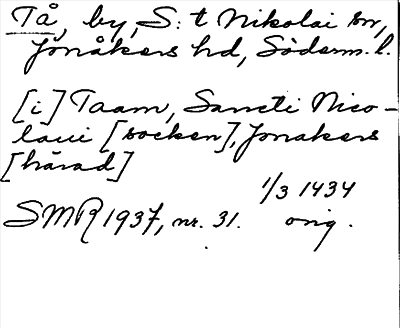 Tå, by, S:t Nikolai sn,
Jönåkers hd, Söderm. l.
[i] Taam, Sancti Nico-
laui [socken], Jonakers
[härad]
1/3 1434
SMR 1937, nr. 31. orig.